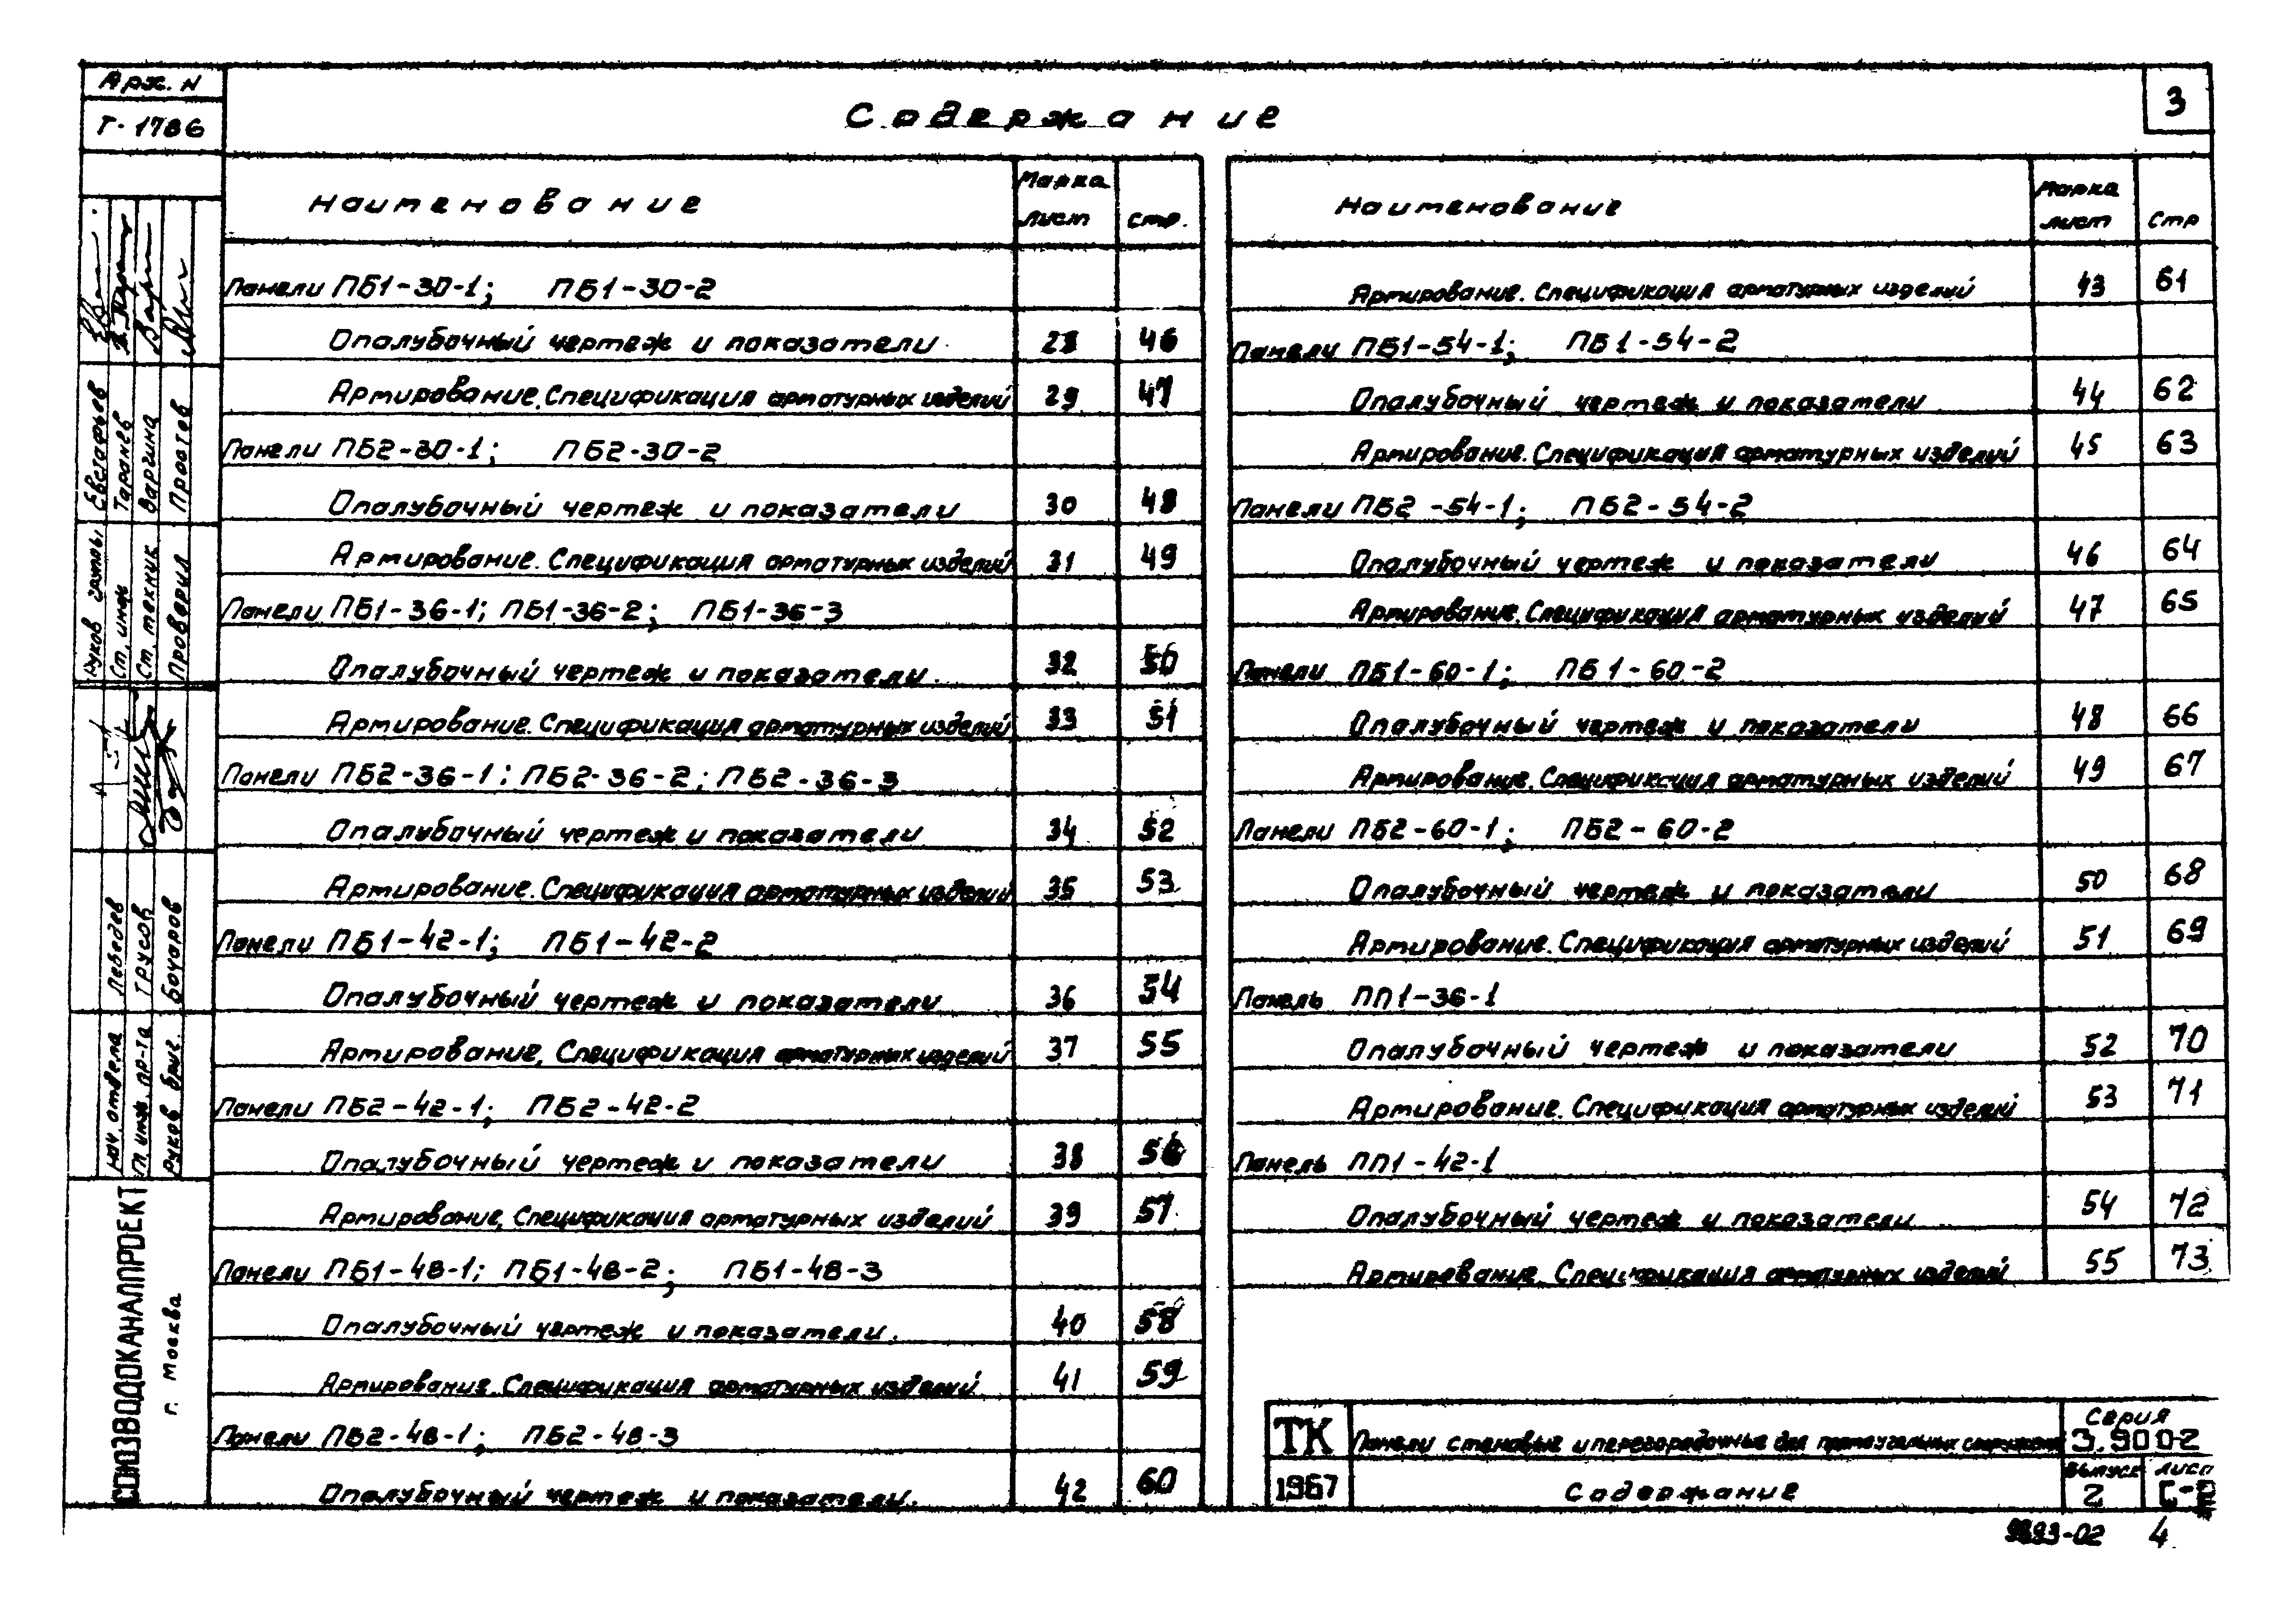 Арх. N
Т-1786
Содержание
3
Наименование
Марка лист
стр.
Панели ПБ1-30-1; ПБ1-30-2
Опалубочный чертеж и показатели 28 46
Армирование. Спецификация арматурных изделий 29 47
Панели ПБ2-30-1; ПБ2-30-2
Опалубочный чертеж и показатели 30 48
Армирование. Спецификация арматурных изделий 31 49
Панели ПБ1-36-1; ПБ1-36-2; ПБ1-36-3
Опалубочный чертеж и показатели. 32 50
Армирование. Спецификация арматурных изделий 33 51
Панели ПБ2-36-1; ПБ2-36-2; ПБ2-36-3
Опалубочный чертеж и показатели 34 52
Армирование. Спецификация арматурных изделий 35 53
Панели ПБ1-42-1; ПБ1-42-2
Опалубочный чертеж и показатели 36 54
Армирование. Спецификация арматурных изделий 37 55
Панели ПБ2-42-1; ПБ2-42-2
Опалубочный чертеж и показатели 38 56
Армирование. Спецификация арматурных изделий 39 57
Панели ПБ1-48-1; ПБ1-48-2; ПБ1-48-3
Опалубочный чертеж и показатели. 40 58
Армирование. Спецификация арматурных изделий 41 59
Панели ПБ2-48-1; ПБ2-48-3
Опалубочный чертеж и показатели. 42 60
Наименование
Марка лист
Стр
Армирование. Спецификация арматурных изделий 43 61
Панели ПБ1-54-1; ПБ1-54-2
Опалубочный чертеж и показатели 44 62
Армирование. Спецификация арматурных изделий 45 63
Панели ПБ2-54-1; ПБ2-54-2
Опалубочный чертеж и показатели 46 64
Армирование. Спецификация арматурных изделий 47 65
Панели ПБ1-60-1; ПБ1-60-2
Опалубочный чертеж и показатели 48 66
Армирование. Спецификация арматурных изделий 49 67
Панели ПБ2-60-1; ПБ2-60-2
Опалубочный чертеж и показатели 50 68
Армирование. Спецификация арматурных изделий 51 69
Панель ПП1-36-1
Опалубочный чертеж и показатели 52 70
Армирование. Спецификация арматурных изделий 53 71
Панель ПП1-42-1
Опалубочный чертеж и показатели 54 72
Армирование. Спецификация арматурных изделий 55 73
Руков группы Евстафьев
Ст. инж Таранев
Ст. техник Варгина
Проверил Протов
Нач. отдела Лебедев
Гл. инж. пр-та Трусов
Руков. бриг. Бочаров
СОЮЗВОДОКАНАЛПРОЕКТ
г. Москва
ТК
1967
Панели стеновые и перегородочные для прямоугольных сооружений
Содержание
Серия
3.900-2
выпуск
2
лист
9893-02 4